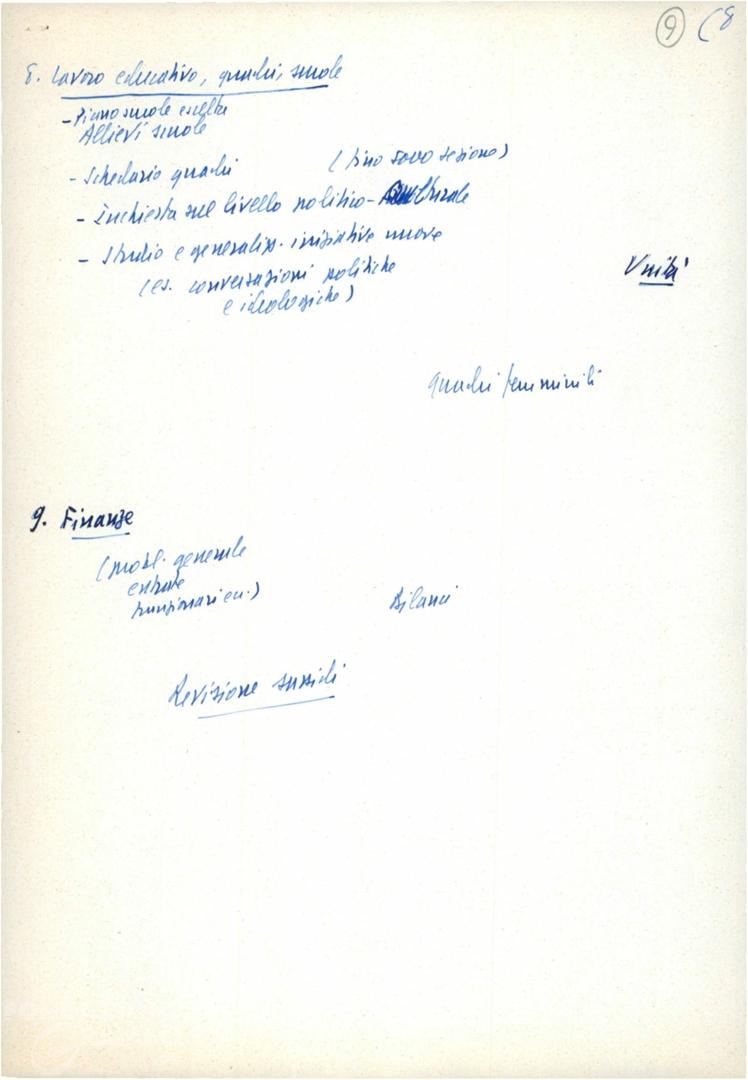 9 (8
8. Lavoro educativo, quadri, scuole
- Piano scuole
Allievi scuole
- Schedario quadri (sino sezione)
- Inchiesta sul livello politico-culturale
- Studio e generalizz. iniziative nuove
(es. conversazioni politiche
e ideologiche)
Unità
quadri femminili
9. Finanze
(mobil. generale
entrate
funzionari ecc.)
Bilanci
Revisione sussidi